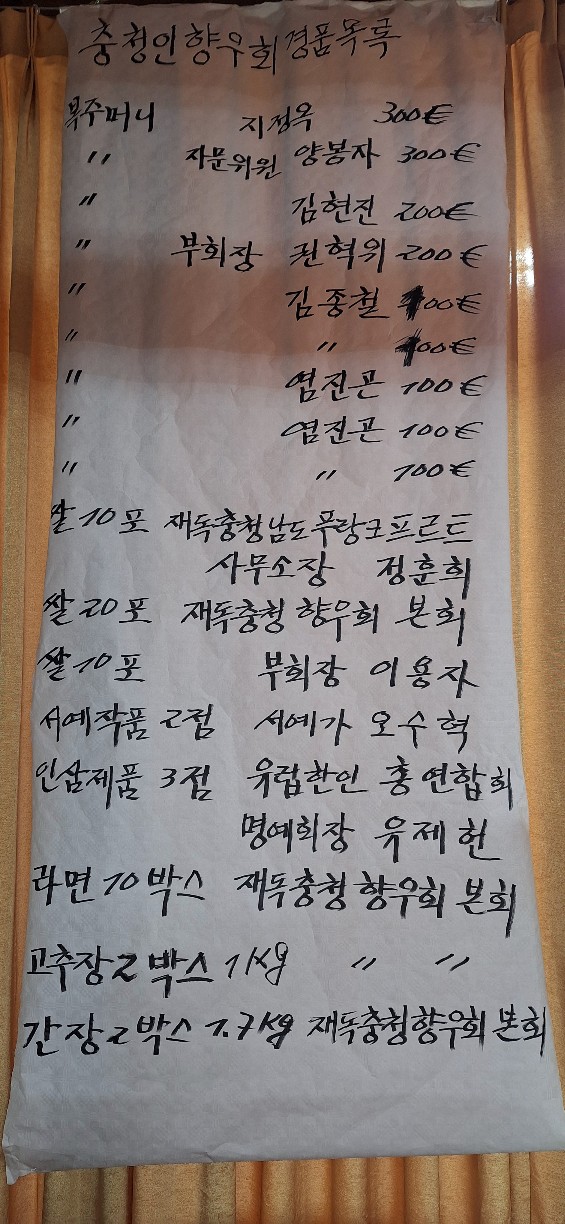 충청인향우회 경품목록
복주머니 지정옥 300€
〃 자문위원 양봉자 300€
〃 김현진 200€
〃 부회장 권혁위 200€
〃 김종철 100€
〃 〃 100€
〃 염진곤 100€
〃 염진곤 100€
〃 〃 100€
쌀 10포 재독충청남도푸랑크프르트
사무소장 정훈희
쌀 20포 재독충청 향우회 본회
쌀 10포 부회장 이용자
서예작품 2점 서예가 오수혁
인삼제품 3점 유럽한인 총연합회
명예회장 유제헌
라면 10박스 재독충청 향우회 본회
고추장 2 박스 1kg 〃 〃
간장 2 박스 1.7kg 재독충청향우회 본회